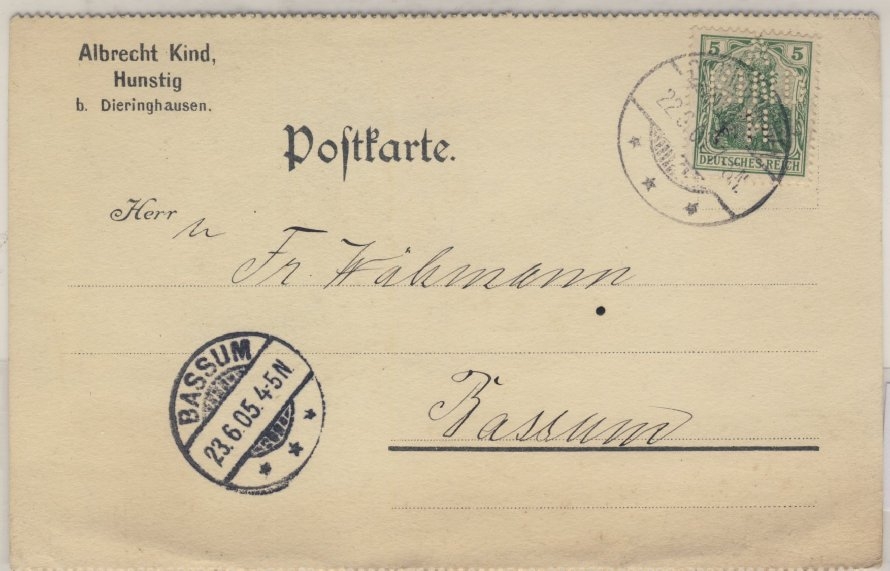 Albrecht Kind,
Hunstig
b. Dieringhausen.
5 5
DEUTSCHES REICH
Poſtkarte.
Herrn
Fr. Wähmann
BASSUM
23.6.05.4-5N.
Bassum